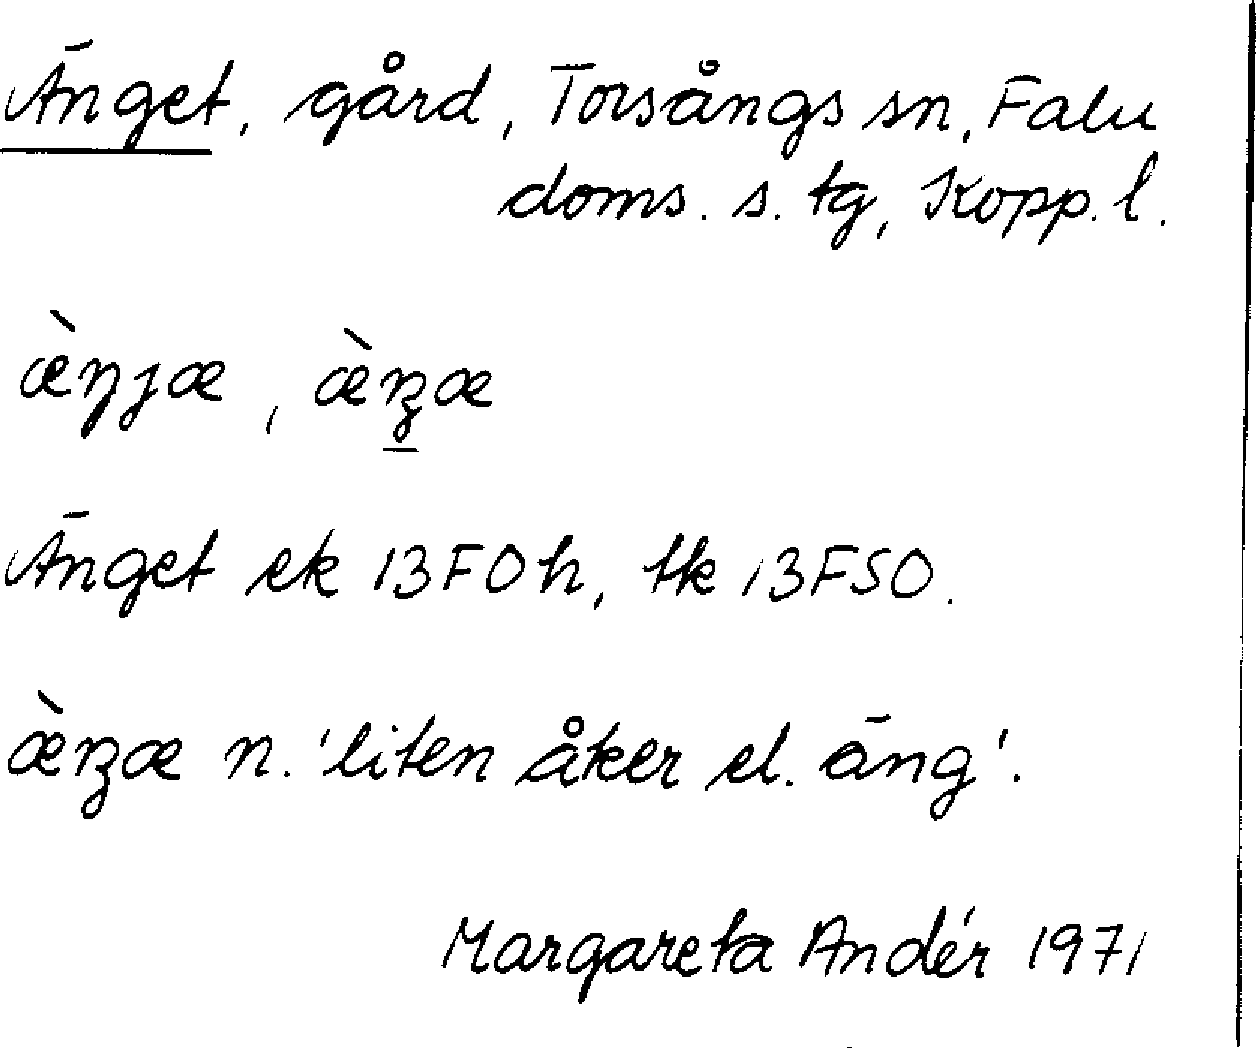 Änget, gård, Torsångs sn, Falu
doms. s. tg, Kopp. l.
æ̀ŋjæ, æ̀ŋ̱ʒæ
Änget ek 13F0h, tk 13FSO.
æ̀ŋʒæ n. 'liten åker el. äng'.
Margareta Andér 1971